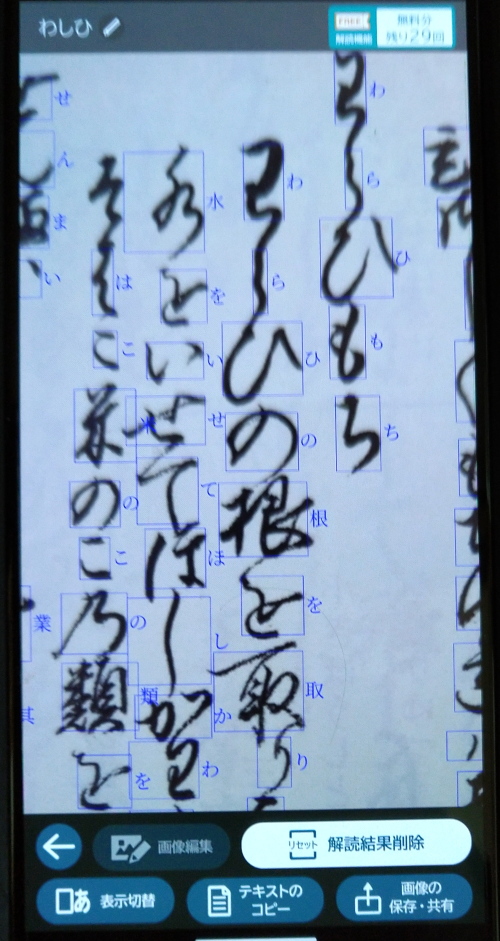 わしひ
FREE 解読機能
無料分 残り29回
わらひもち
わらひの根を取り
水をいせてほしかわ
そはこ米のこの類を
せんまい
業
其
画像編集
リセット 解読結果削除
あ 表示切替
テキストのコピー
画像の保存・共有